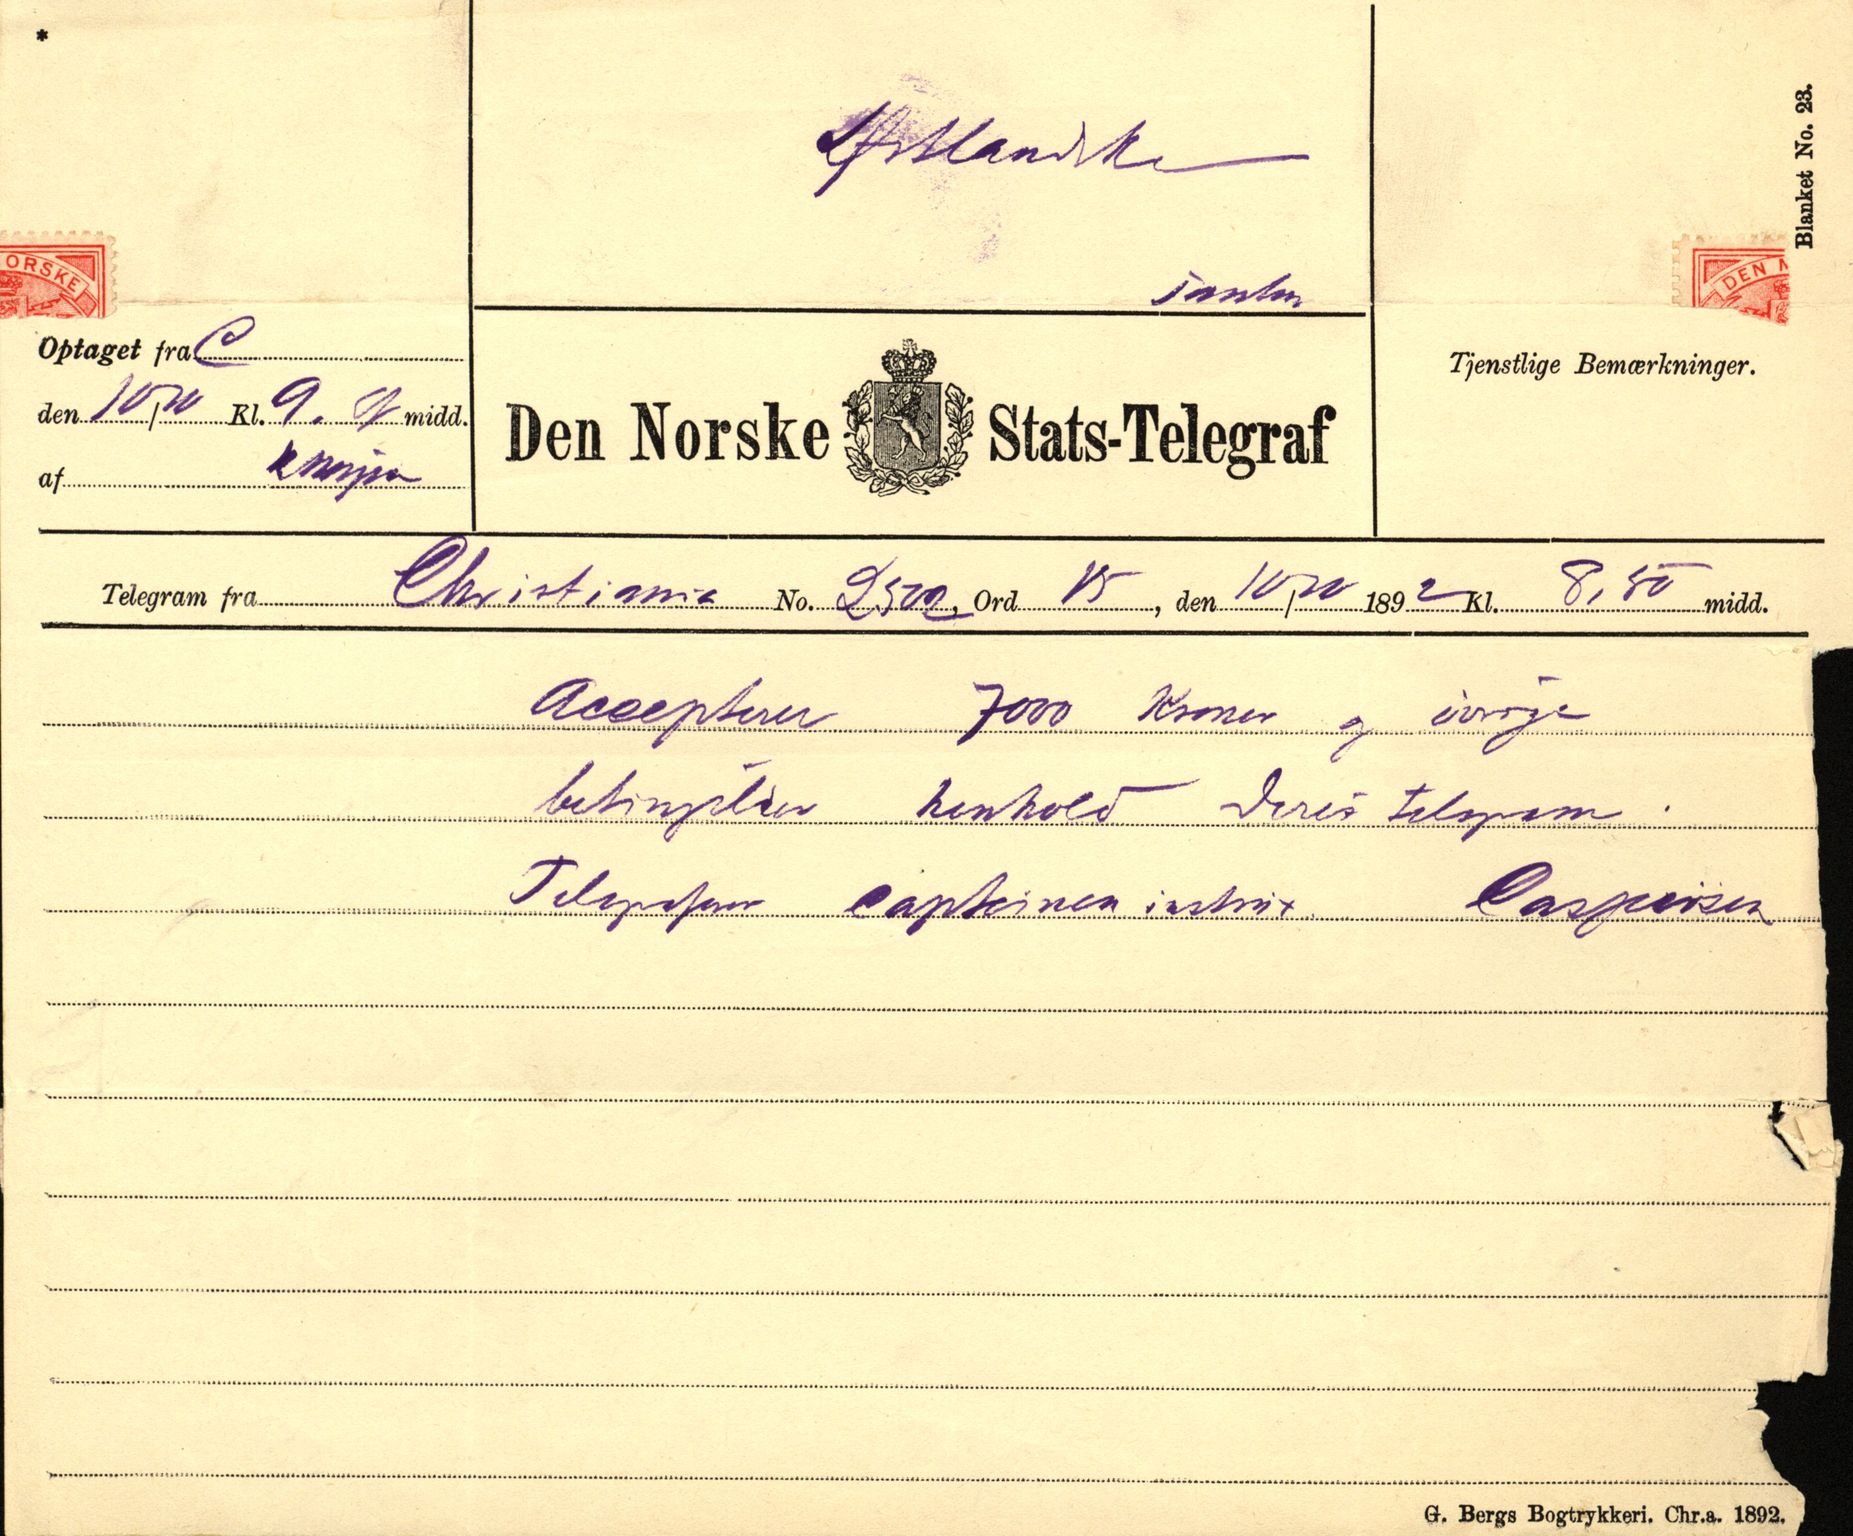 *
Blanket No. 23.
ORSKE
DEN N
Optaget fra C
den 10/10 Kl. 9. midd.
af
Den Norske Stats-Telegraf
Tjenstlige Bemærkninger.
Telegram fra Christiania No. 2502, Ord 15, den 10/10 1892 Kl. 8,50 midd.
Accepterer 7000 Kroner og øvrige
betingelser henhold Deres telegram.
Telegraferer capteinen instrux. Caspersen
G. Bergs Bogtrykkeri. Chr.a. 1892.